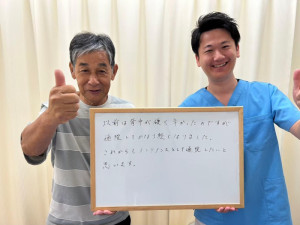 以前は背中が硬く辛かったのですが
通院してかなり楽になりました。
これからもメンテナンスとして通院したいと
思います。